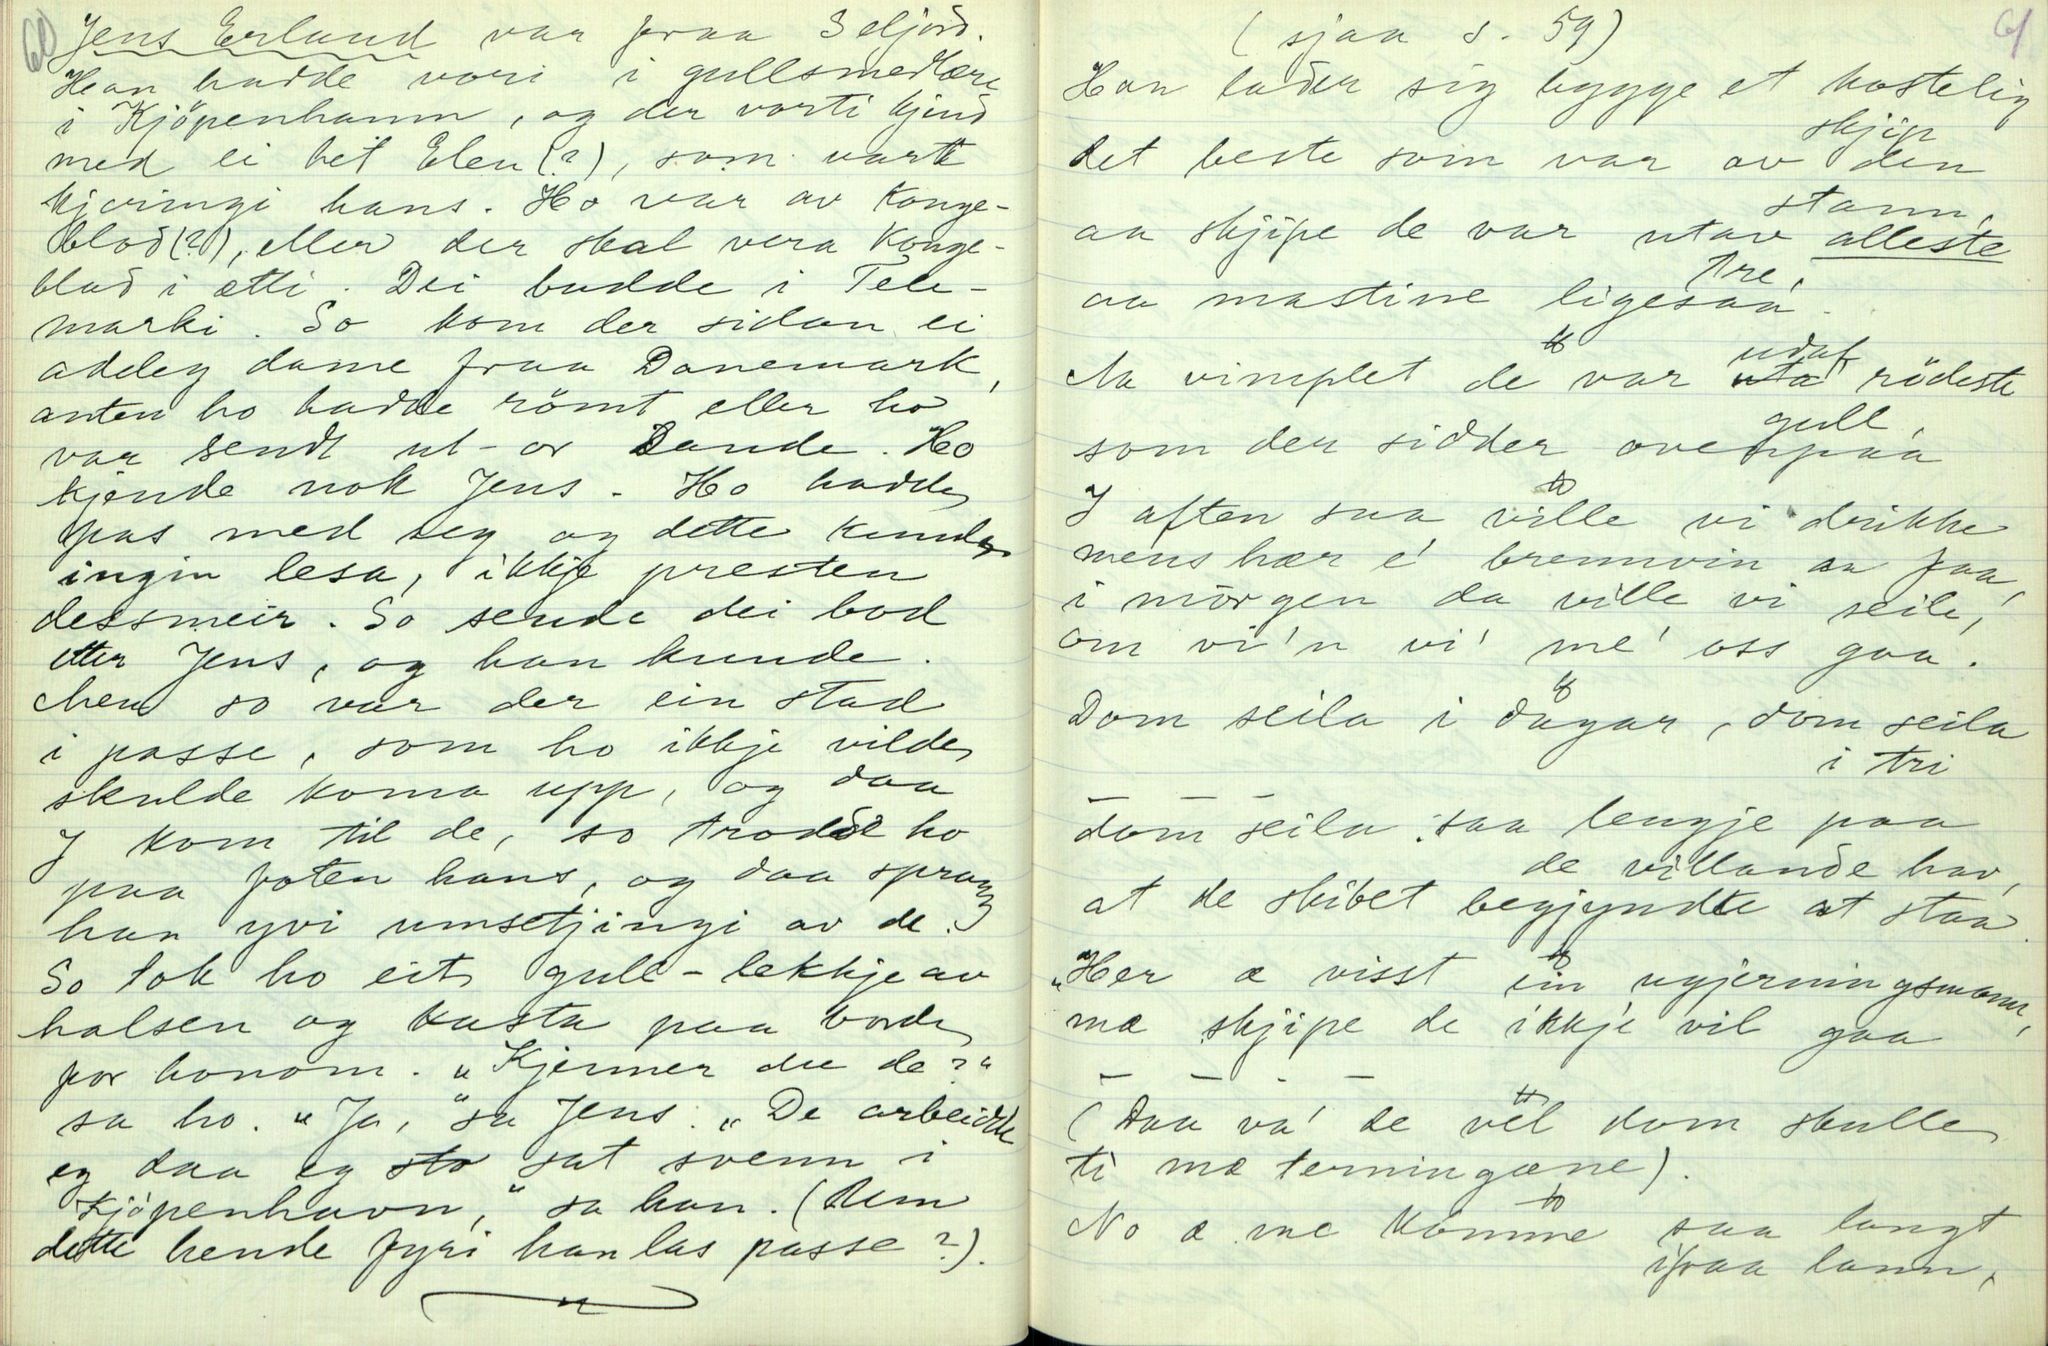 60
Jens Erland var fraa Seljord.
Han hadde vori i gullsmedlære
i Kjöpenhamn, og der vorti kjend
med ei het Elen (?), som vart
kjeringi hans. Ho var av konge-
blod (?), eller der skal vera konge-
blod i ætti. Dei budde i Tele-
marki. So kom der sidan ei
adeleg dame fraa Danemark,
anten ho hadde römt eller ho
var sendt ut-or lande. Ho
kjende nok Jens. Ho hadde
pas med seg og dette kunde
ingin lesa, ikkje presten
dessmeir. So sende dei bod
etter Jens, og han kunde.
Men so var der ein stad
i passe, som ho ikkje vilde
skulde koma upp, og daa
J kom til de, so trodde ho
paa foten hans, og daa sprang
han yvi umsetjingi av de.
So tok ho eit gull-lekkje av
halsen og kasta paa borde
for honom. „Kjenner du de?"
sa ho. „Ja," sa Jens. „De arbeidde
eg daa eg sto sat svenn i
Kjöpenhavn," sa han. (Um
dette hende fyri han las passe?).
61
(sjaa s. 59)
Han lader sig bygge et kostelig
skjip
det beste som var av den
stann,
aa skjipe de var utav alleste
tre,
aa mastine ligesaa.
Aa vimplet de var uta udaf rödeste
gull,
som der sidder ovenpaa
I aften saa ville vi drikke
mens hær e' brennvin aa faa,
i morgen da ville vi seile,
om vi'n vi' me' oss gaa.
Dom seila i dagar, dom seila
i tri
dom seila saa lengje paa
de villande hav,
at de skibet begjyndte at staa.
„Her æ visst ein ugjerningsmann,
mæ skjipe de ikkje vil gaa
(Daa va' de vel dom skulle
ti mæ terningane).
No æ me komme saa langt
ifraa lann,